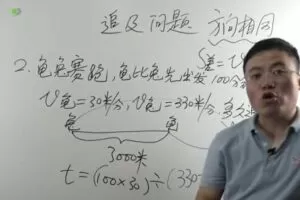 追及问题 方向相同
S差=V
2.龟兔赛跑,龟比兔先出发100分
V龟=30米/分,V兔=330米/分.多久
龟 兔
3000米
t=(100×30)÷(330